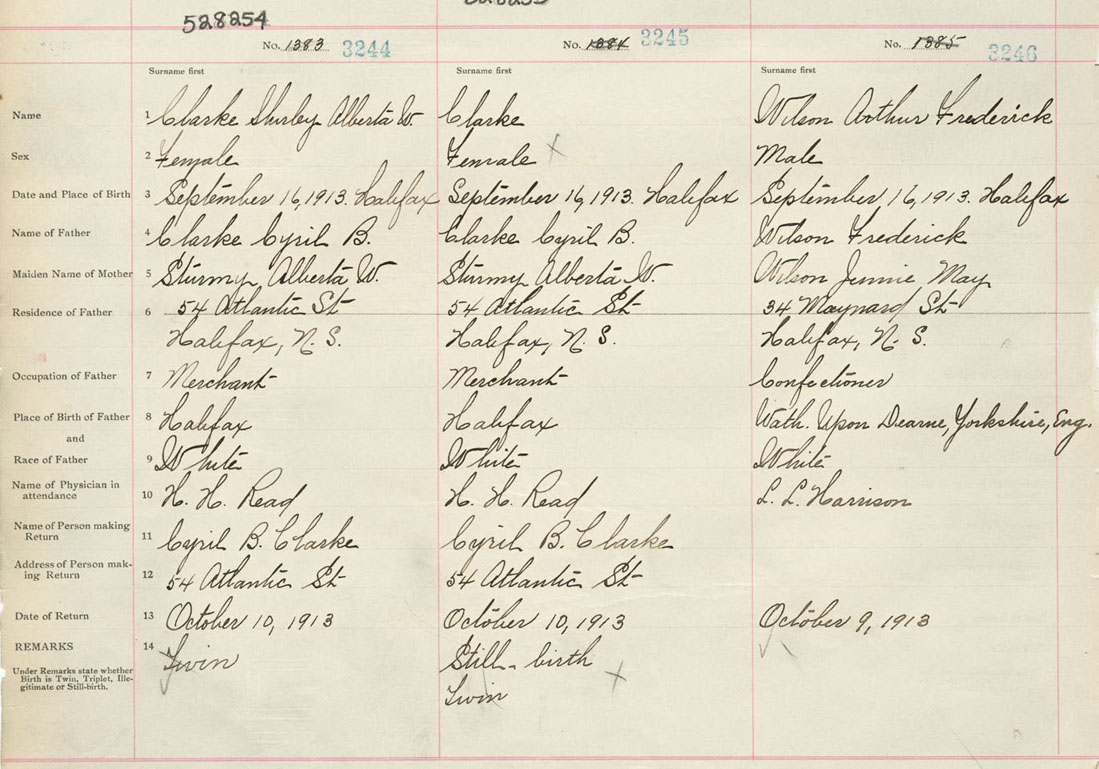 528254
No. 1383 3244 No. 1384 3245 No. 1385 3246
Surname first Surname first Surname first
Name 1 Clarke Shirley Alberta W. Clarke Wilson Arthur Frederick
Sex 2 Female Female X Male
Date and Place of Birth 3 September 16, 1913. Halifax September 16, 1913. Halifax September 16, 1913. Halifax
Name of Father 4 Clarke Cyril B. Clarke Cyril B. Wilson Frederick
Maiden Name of Mother 5 Sturmy, Alberta W. Sturmy Alberta W. Wilson Jennie May
Residence of Father 6 54 Atlantic St 54 Atlantic St 34 Maynard St
Halifax, N. S. Halifax, N. S. Halifax, N. S.
Occupation of Father 7 Merchant Merchant Confectioner
Place of Birth of Father 8 Halifax Halifax Wath. Upon Dearne, Yorkshire, Eng.
and
Race of Father 9 White White White
Name of Physician in
attendance 10 H. H. Read H. H. Read L. L. Harrison
Name of Person making
Return 11 Cyril B. Clarke Cyril B. Clarke
Address of Person mak-
ing Return 12 54 Atlantic St 54 Atlantic St
Date of Return 13 October 10, 1913 October 10, 1913 October 9, 1913
REMARKS 14 Twin Still-birth
Under Remarks state whether
Birth is Twin, Triplet, Ille-
gitimate or Still-birth.
Twin